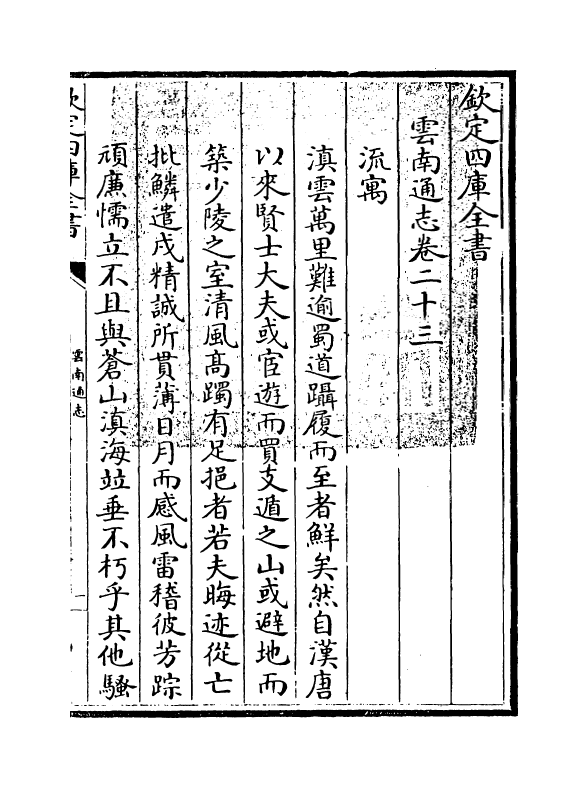 欽定四庫全書
雲南通志卷二十三
流寓
滇雲萬里難逾蜀道躡履而至者鮮矣然自漢唐
以來賢士大夫或宦遊而買支遁之山或避地而
築少陵之室清風高躅有足挹者若夫晦迹從亡
批鱗遣戍精誠所貫薄日月而感風雷稽彼芳踪
頑廉懦立不且與蒼山滇海竝垂不朽乎其他騷
欽定四庫全書
雲南通志